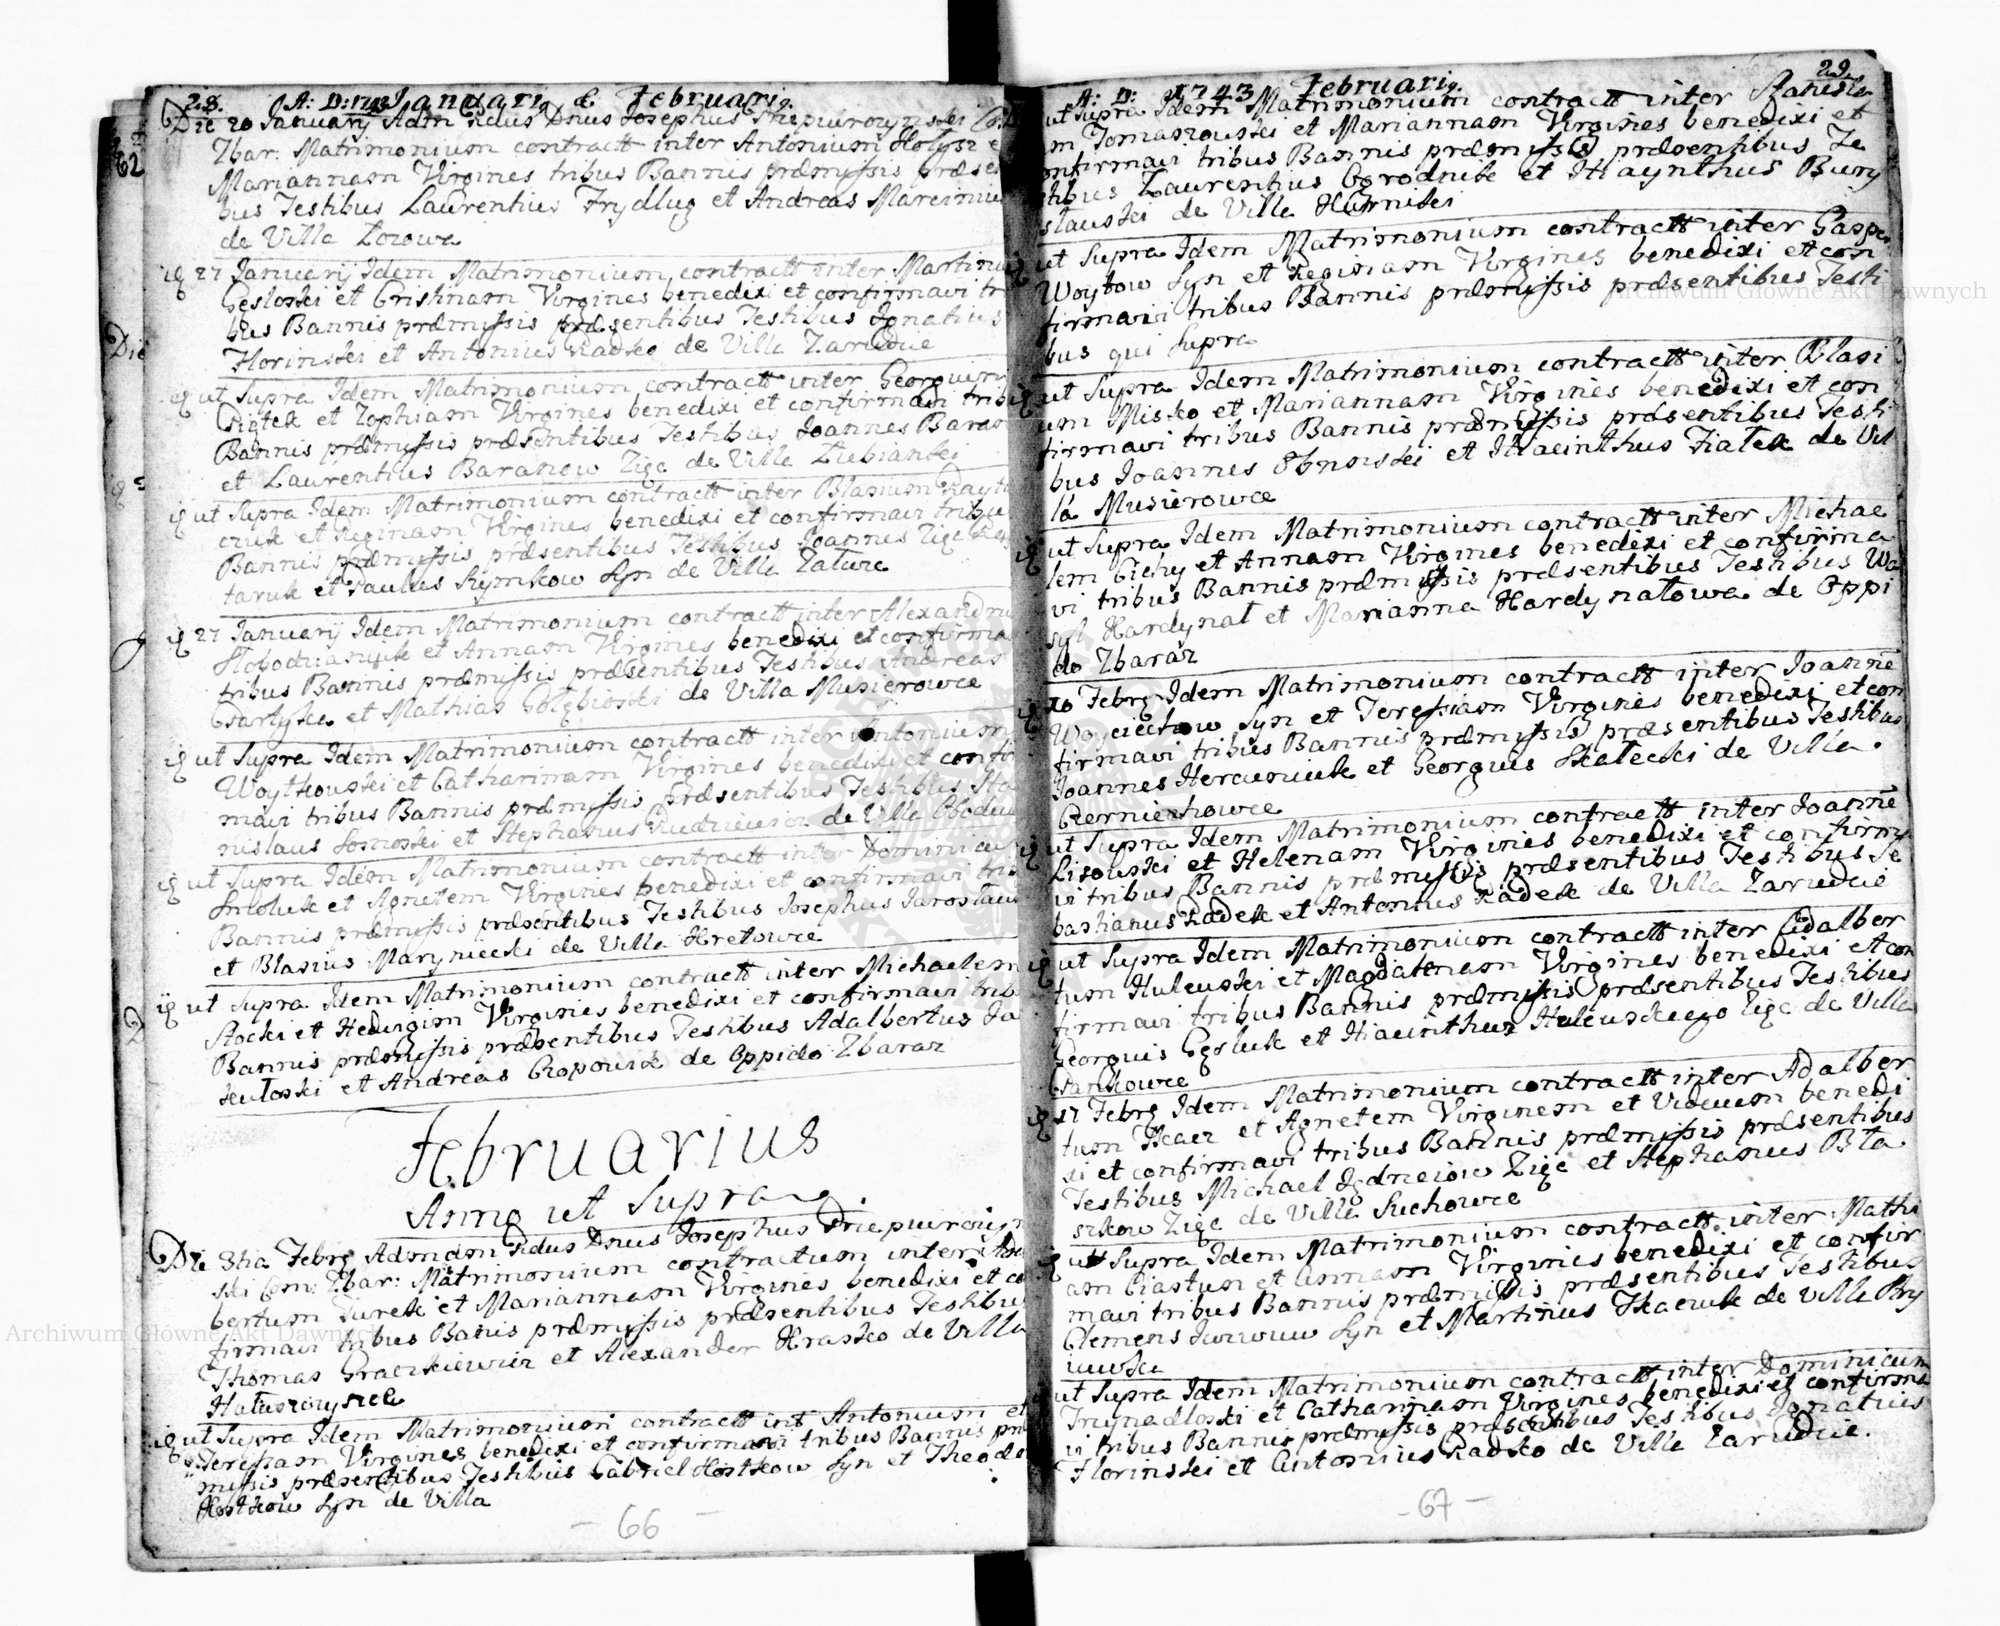 28. A: D: 1743 Januarig & Februarig.
Die 20 Januarij Adm Rdus Dnus Josephus
Zbar: Matrimonium contractt inter Antonium Holysz
Mariannam Virgines tribus Bannis præmissis præsen
bus Testibus Laurentius Frydlug et Andreas
de Villa Lozowa
27 Januarij Idem Matrimonium contractt inter Martinu
Gesloski et Cristinam Virgines benedixi et confirmavi tri
bus Bannis præmissis præsentibus Testibus Ignatius
Florinski et Antonius Radko de Villa Zarudue
ut Supra Idem Matrimonium contractt inter Georgium
Piątek et Zophiam Virgines benedixi et confirmavi trib
Bannis præmissis præsentibus Testibus Joannes Baran
et Laurentius Baranow Zięc de Villa Lubianki
ut Supra Idem Matrimonium contractt inter Blasium
czuk et Reginam Virgines benedixi et confirmavi tribu
Bannis præmissis præsentibus Testibus Joannes Zięc
taruk et Paulus Szymkow Syn de Villa Zaluze
27 Januarij Idem Matrimonium contractt inter Alexandru
et Annam Virgines benedixi et confirma
tribus Bannis præmissis præsentibus Testibus Andreas
et Mathias Gołębioski de Villa Musierowce
ut Supra Idem Matrimonium contractt inter Antonium
Woytkouski et Catharinam Virgines benedixi et confir
mavi tribus Bannis præmissis præsentibus Testibus Sta
nislaus Sosnoski et Stephanus de Villa
ut Supra Idem Matrimonium contractt inter Dominicu
Smoluk et Agnetem Virgines benedixi et confirmavi tri
Bannis præmissis præsentibus Testibus Josephus Jaroslaus
et Blasius Marynicski de Villa Hretowce
ut Supra Idem Matrimonium contractt inter Michaelem
Stocki et Hedvigim Virgines benedixi et confirmavi trib
Bannis præmissis præsentibus Testibus Adalbertus Ja
kutoski et Andreas Cropowik de Oppido Zbaraz
Februarius
Anno ut Supra.
Die 3tia Febrg Admdm Rdus Dnus Josephus
ski Com: Zbar: Matrimonium contractum inter
bertum Jurek et Mariannam Virgines benedixi et co
firmavi tribus Banis præmissis præsentibus Testibu
Thomas Graczkiewicz et Alexander Hrasko de Villa
Hałuszczynce
ut Supra Idem Matrimonium contractt int Antonium et
Teressam Virgines benedixi et confirmavi tribus Bannis præ
missis præsentibus Testibus Gabriel Kostkow Syn et Theodo
Kostkow Syn de Villa
- 66 -
A: D: 1743 Februarig. 29.
ut Supra Idem Matrimonium contractt inter Stanisla
m Tomaszouski et Mariannam Virgines benedixi et
onfirmavi tribus Bannis præmissis præsentibus Te
stibus Laurentius Ogrodnik et Hiaynthus Bury
slauski de Villa Hurniki
ut Supra Idem Matrimonium contractt inter Gaspa
Woytow Syn et Reginam Virgines benedixi et con
firmavi tribus Bannis præmissis præsentibus Testi
bus qui Supra
ut Supra Idem Matrimonium contractt inter Blasi
um Misko et Mariannam Virgines benedixi et con
firmavi tribus Bannis præmissis præsentibus Testi
bus Joannes et Hiacinthus Fiałek de Vil
la Musierowce
ut Supra Idem Matrimonium contractt inter Michae
lem Cichy et Annam Virgines benedixi et confirma
vi tribus Bannis præmissis præsentibus Testibus Wa
syl Hardynał et Marianna Hardynałowa de Oppi
do Zbaraz
Febrg Idem Matrimonium contractt inter Joanne
Woyciechow Syn et Teressiam Virgines benedixi et con
firmavi tribus Bannis præmissis præsentibus Testibus
Joannes Hercuniuk et Georgius Skałecki de Villa
Czernichowce
ut Supra Idem Matrimonium contractt inter Joanne
Lisouski et Helenam Virgines benedixi et confirma
vi tribus Bannis præmissis præsentibus Testibus Se
bastianus Radek et Antonius Radek de Villa Zarudcie
ut Supra Idem Matrimonium contractt inter Adalber
tum Huleuski et Magdalenam Virgines benedixi et con
firmavi tribus Bannis præmissis præsentibus Testibus
Georguis Gesluk et Hiacinthus Huleuskiego Zięc de Villa
Iankowce
17 Febrg Idem Matrimonium contractt inter Adalber
tum Tkacz et Agnetem Virginem et Viduum benedi
xi et confirmavi tribus Bannis præmissis præsentibus
Testibus Michael Zięc et Stephanus Bła
szkow Zięc de Villa Suchowce
ut Supra Idem Matrimonium contractt inter Mathi
am Ciastun et Annam Virgines benedixi et confir
mavi tribus Bannis præmissis præsentibus Testibus
Clemens Syn et Martinus Tkaczuk de Villa

ut Supra Idem Matrimonium contractt inter Dominicum
Trynadloski et Catharinam Virgines benedixi et confirma
vi tribus Bannis præmissis præsentibus Testibus Ignatius
Florinski et Antonius Radko de Villa Zarudcie.
- 67 -
Archiwum Główne Akt Dawnych
Archiwum Główne Akt Dawnych